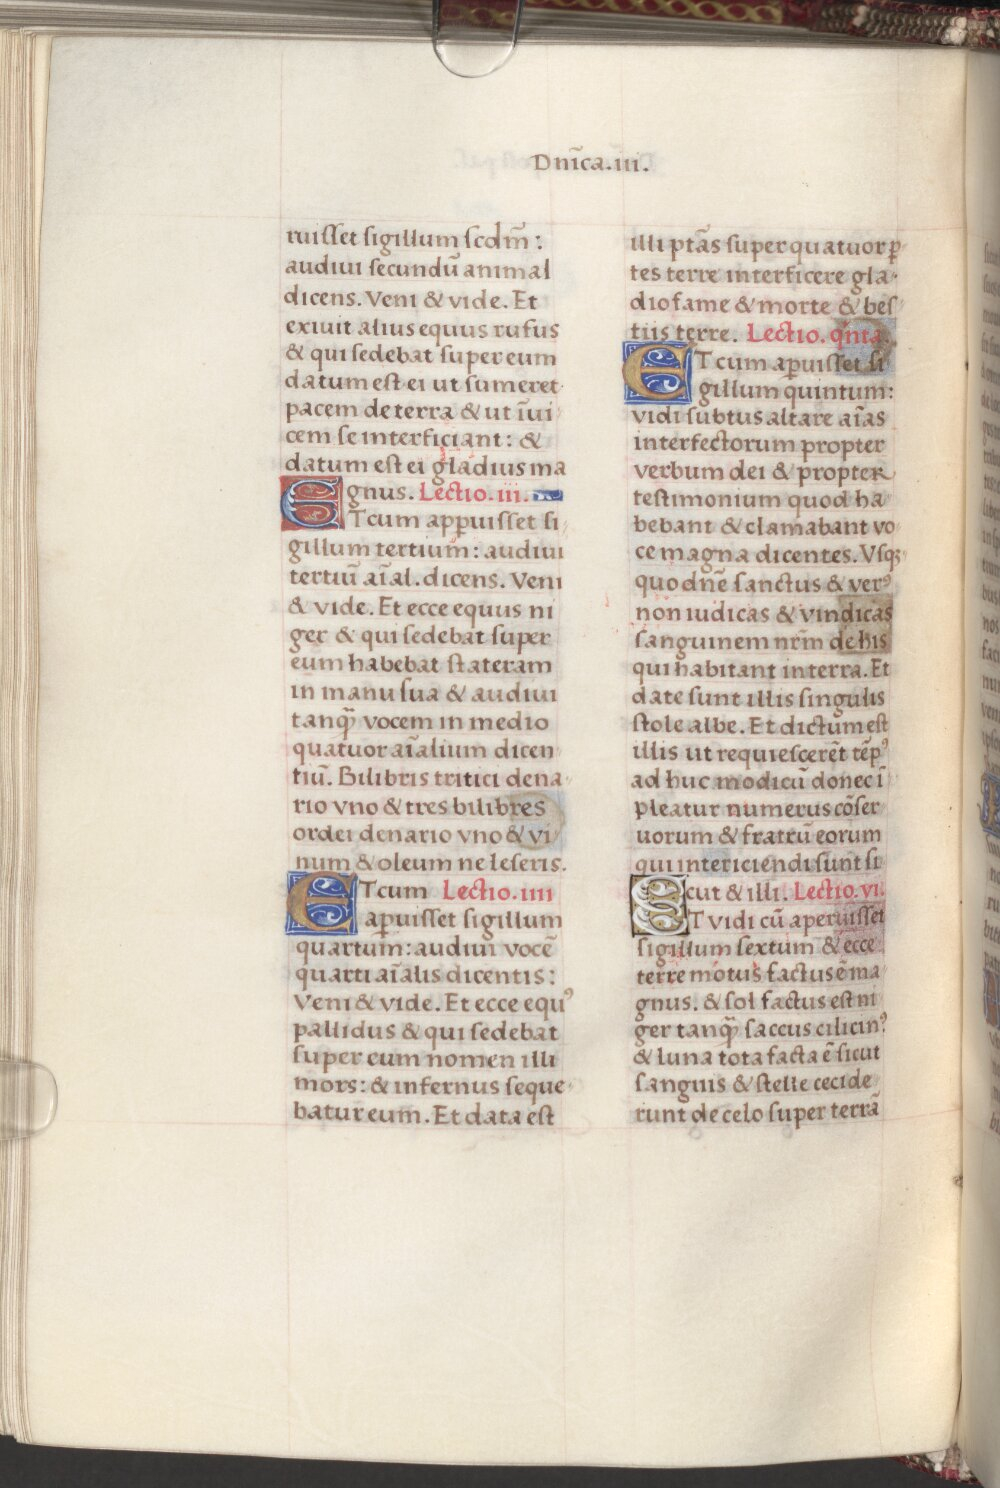 Dnĩca.iii.
ruisset sigillum scdm̃:
audiui secundũ animal
dicens. Veni & vide. Et
exiuit alius equus rufus
& qui sedebat super eum
datum est ei ut sumeret
pacem de terra & ut ĩui
cem se interficiant: &
datum est ei gladius ma
gnus. Lectio.iii.
ET cum apꝑuisset si-
gillum tertium: audiui
tertiũ aĩal. dicens. Veni
& vide. Et ecce equus ni
ger & qui sedebat super
eum habebat stateram
in manu sua & audiui
tanq̃ vocem in medio
quatuor aĩalium dicen
tiũ. Bilibris tritici dena-
rio vno & tres bilibres
ordei denario vno & vi
num & oleum ne leseris.
ET cum Lectio.iiii
aꝑuisset sigillum
quartum: audiui vocẽ
quarti aĩalis dicentis:
Veni & vide. Et ecce equꝰ
pallidus & qui sedebat
super eum nomen illi
mors: & infernus seque-
batur eum. Et data est
illi ptãs super quatuor ꝑ-
tes terre interficere gla-
dio fame & morte & bes-
tiis terre. Lectio. q̃nta.
ET cum aꝑuisset si
gillum quintum:
vidi subtus altare aĩas
interfectorum propter
verbum dei & propter
testimonium quod ha
bebant & clamabant vo-
ce magna dicentes. Vsqꝫ
quo dnẽ sanctus & verꝰ
non iudicas & vindicas
sanguinem nrm̃ de his
qui habitant in terra. Et
date sunt illis singulis
stole albe. Et dictum est
illis ut requiescerẽt tẽpꝰ
ad huc modicũ donec ĩ
pleatur numerus cõser
uorum & fratrũ eorum
qui intericiendi sunt si
cut & illi. Lectio.vi.
ET vidi cũ aperuisset
sigillum sextum & ecce
terre motus factus ẽ ma-
gnus. & sol factus est ni
ger tanq̃ saccus cilicinꝰ
& luna tota facta ẽ sicut
sanguis & stelle cecide-
runt de celo super terrã